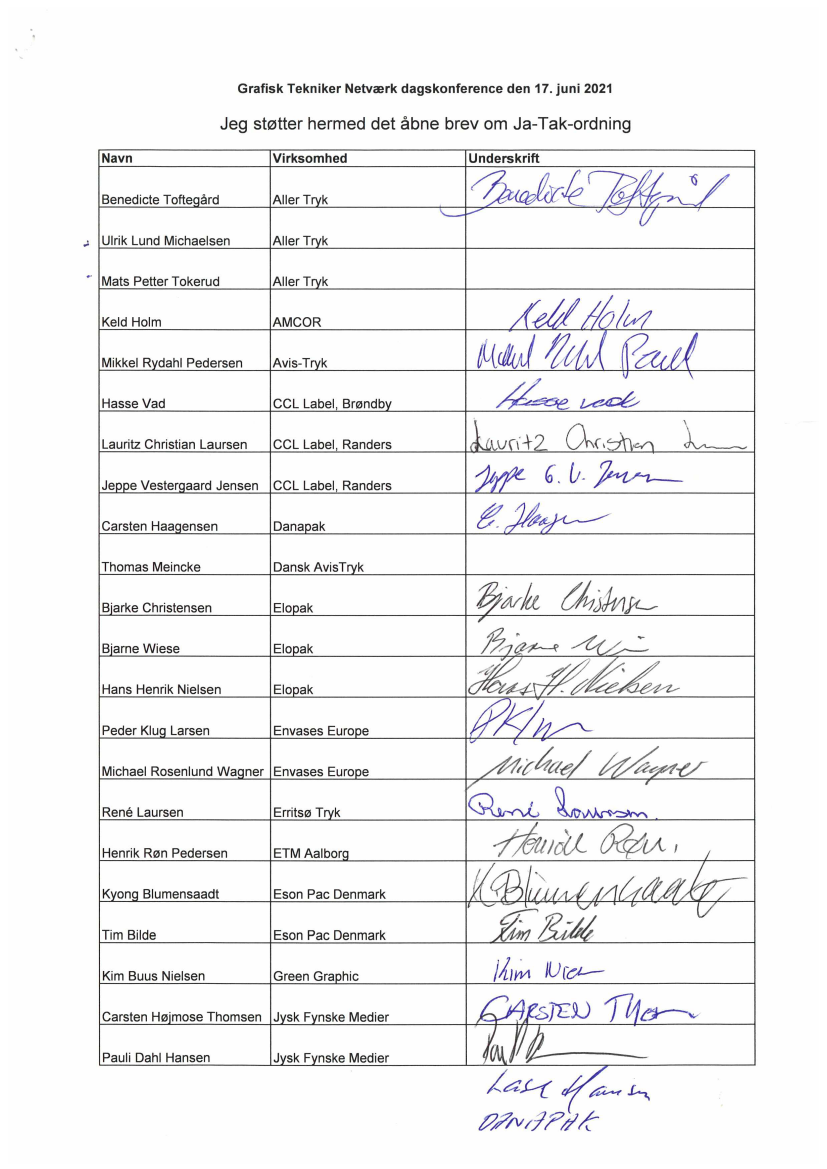 Grafisk Tekniker Netværk dagskonference den 17. juni 2021
Jeg støtter hermed det åbne brev om Ja-Tak-ordning
Navn Virksomhed Underskrift
Benedicte Toftegård Aller Tryk Benedicte Toftegård
Ulrik Lund Michaelsen Aller Tryk
Mats Petter Tokerud Aller Tryk
Keld Holm AMCOR Keld Holm
Mikkel Rydahl Pedersen Avis-Tryk
Hasse Vad CCL Label, Brøndby Hasse Vad
Lauritz Christian Laursen CCL Label, Randers Lauritz Christian
Jeppe Vestergaard Jensen CCL Label, Randers Jeppe G. V. Jensen
Carsten Haagensen Danapak C. Haagen
Thomas Meincke Dansk AvisTryk
Bjarke Christensen Elopak Bjarke Christensen
Bjarne Wiese Elopak Bjarne Wi
Hans Henrik Nielsen Elopak Hans H. Nielsen
Peder Klug Larsen Envases Europe
Michael Rosenlund Wagner Envases Europe Michael Wagner
René Laursen Erritsø Tryk René Laursen
Henrik Røn Pedersen ETM Aalborg Henrik Røn
Kyong Blumensaadt Eson Pac Denmark K Blumensaadt
Tim Bilde Eson Pac Denmark Tim Bilde
Kim Buus Nielsen Green Graphic Kim Niel
Carsten Højmose Thomsen Jysk Fynske Medier CARSTEN Thom
Pauli Dahl Hansen Jysk Fynske Medier
Lasse Hansen
DANAPAK